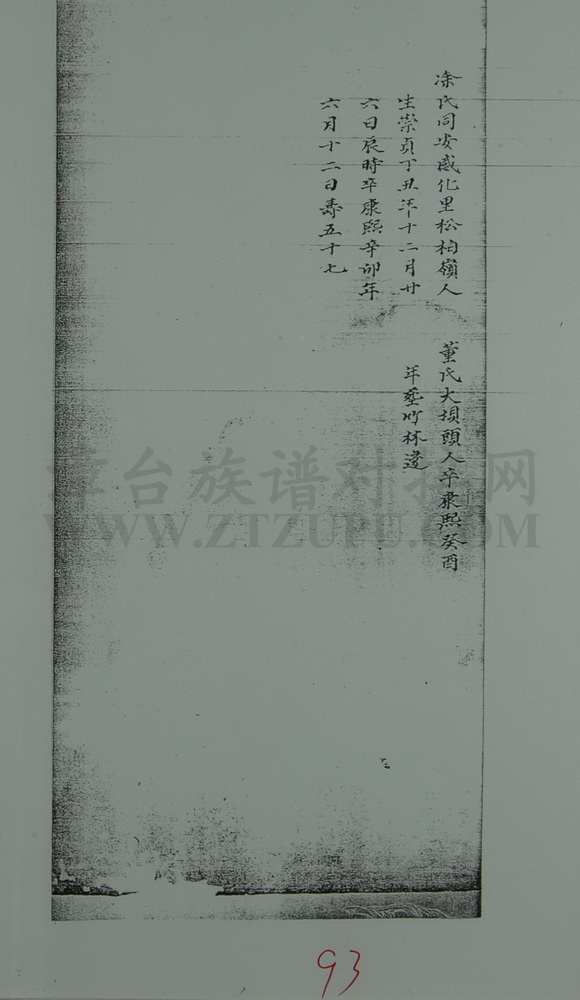 涂氏同安感化里松柏嶺人
生崇貞丁丑年十二月廿
六日辰時卒康熙辛卯年
六月十二日壽五十七
董氏大埧頭人卒康熙癸酉
年塟竹林邊
漳台族谱对接网
WWW.ZTZUPU.COM
93